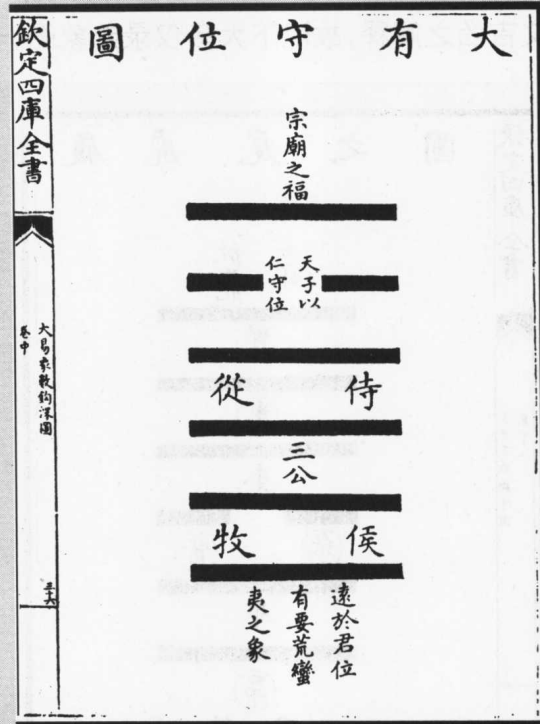 大有守位圖
宗廟之福
天子以
仁守位
侍從
三公
侯牧
遠於君位
有要荒蠻
夷之象
欽定四庫全書
大易象數鉤深圖
卷中
三六